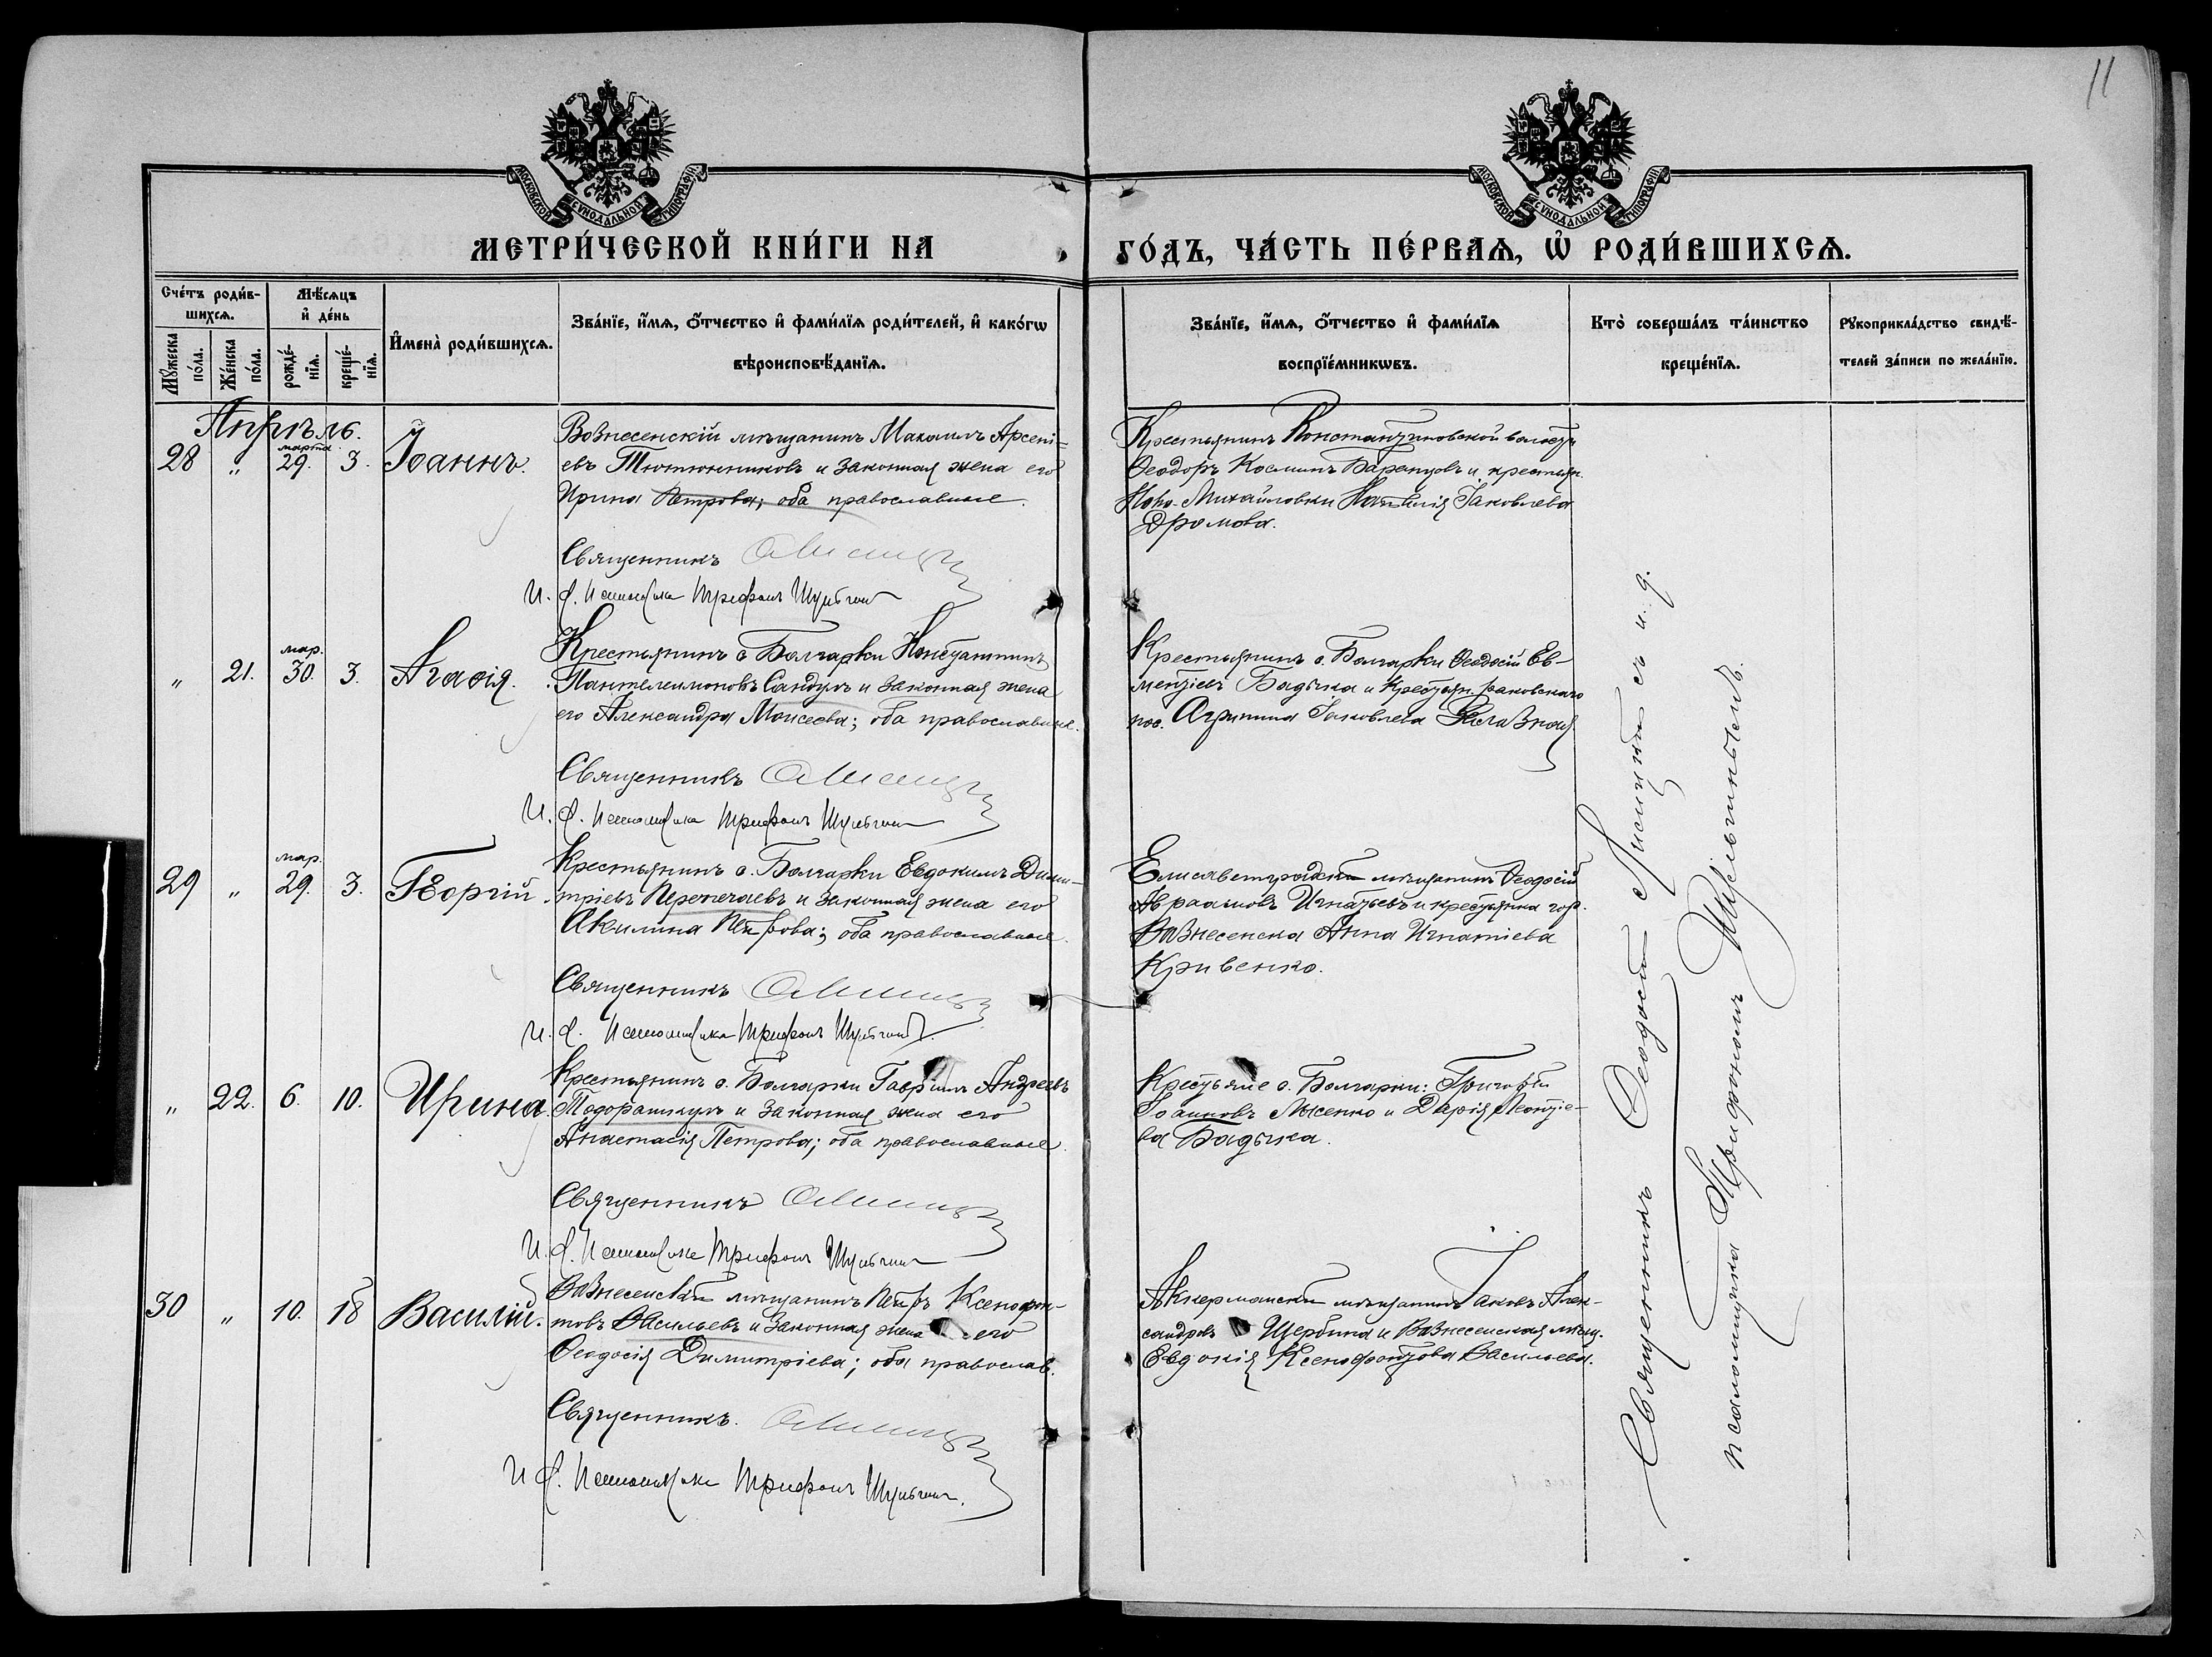 11
МОСКОВСКОЙ СѴНОДАЛЬНОЙ ТИПОГРАФІИ
МОСКОВСКОЙ СѴНОДАЛЬНОЙ ТИПОГРАФІИ
МЕТРИ́ЧЕСКОЙ КНИ́ГИ НА
ГО́ДЪ, ЧА́СТЬ ПЕ́РВАѦ, Ѽ РОДИ́ВШИХСѦ.
Сче́тъ роди́в-
шихсѧ.
Мꙋ́жеска по́ла.
Же́нска по́ла.
Мѣ́сѧцъ
и҆ де́нь
рожде́-
нїѧ.
креще́-
нїѧ.
И҆мена̀ роди́вшихсѧ.
Зва́нїе, и҆́мѧ, ѻ҆́тчество и҆ фами́лїѧ роди́телей, и҆ како́гѡ
вѣроисповѣ́данїѧ.
Зва́нїе, и҆́мѧ, ѻ҆́тчество и҆ фами́лїѧ
воспрїе́мникѡвъ.
Кто̀ соверша́лъ та́инство
креще́нїѧ.
Рꙋкоприкла́дство свидѣ́-
телей за́писи по жела́нїю.
Апрѣль.
28 " марта 29. 3. Іоаннъ.
Вознесенскій мѣщанинъ Максимъ Арсені-
евъ Тютюнниковъ и законная жена его
Ирина Петрова; оба православные.
Священникъ
И. д. псаломщика Трифонъ Шульгин
Крестьянинъ Константиновской волости
Ѳеодоръ Косминъ Баранцовъ и крестьян.
Ново-Михайловки Наталія Іаковлева
Дромова.
" 21. мар. 30. 3. Агаѳія.
Крестьянинъ с. Болгарки Константинъ
Пантелеимоновъ Сандулъ и законная жена
его Александра Моисеева; оба православные.
Священникъ
И. д. псаломщика Трифонъ Шульгин
Крестьянинъ с. Болгарки Ѳеодосій Ев-
ментіевъ Бадыка и крестьян. Раковскаго
пос. Агрипина Іаковлева
29 " мар. 29. 3. Георгій.
Крестьянинъ с. Болгарки Евдокимъ Дими-
тріевъ Перепечаевъ и законная жена его
Акилина Петрова; оба православные.
Священникъ
И. д. псаломщика Трифонъ Шульгин
Елисаветградскій мѣщанинъ Ѳеодосій
Авраамовъ Игнатьевъ и крестьянка гор.
Вознесенска Анна Игнатіева
Кривенко.
" 22. 6. 10. Ирина.
Крестьянинъ с. Болгарки Гавріилъ Андреевъ
Тодорашкулъ и законная жена его
Анастасія Петрова; оба православные.
Священникъ
И. д. псаломщика Трифонъ Шульгин
Крестьяне с. Болгарки: Григорій
Іоанновъ Лысенко и Дарія Леонтіе-
ва Бадыка.
30 " 10. 18 Василій.
Вознесенскій мѣщанинъ Петръ Ксенофон-
товъ Васильевъ и законная жена его
Ѳеодосія Димитріева; оба православ.
Священникъ.
И. д. псаломщика Трифонъ Шульгин.
Аккерманскій мѣщанинъ Іаковъ Алек-
сандровъ Щербина и Вознесенская мѣщ.
Евдокія Ксенофонтова Васильева.
Священникъ Ѳеодосій Лисицкій съ и. д.
псаломщика Трифономъ Шульгинымъ.